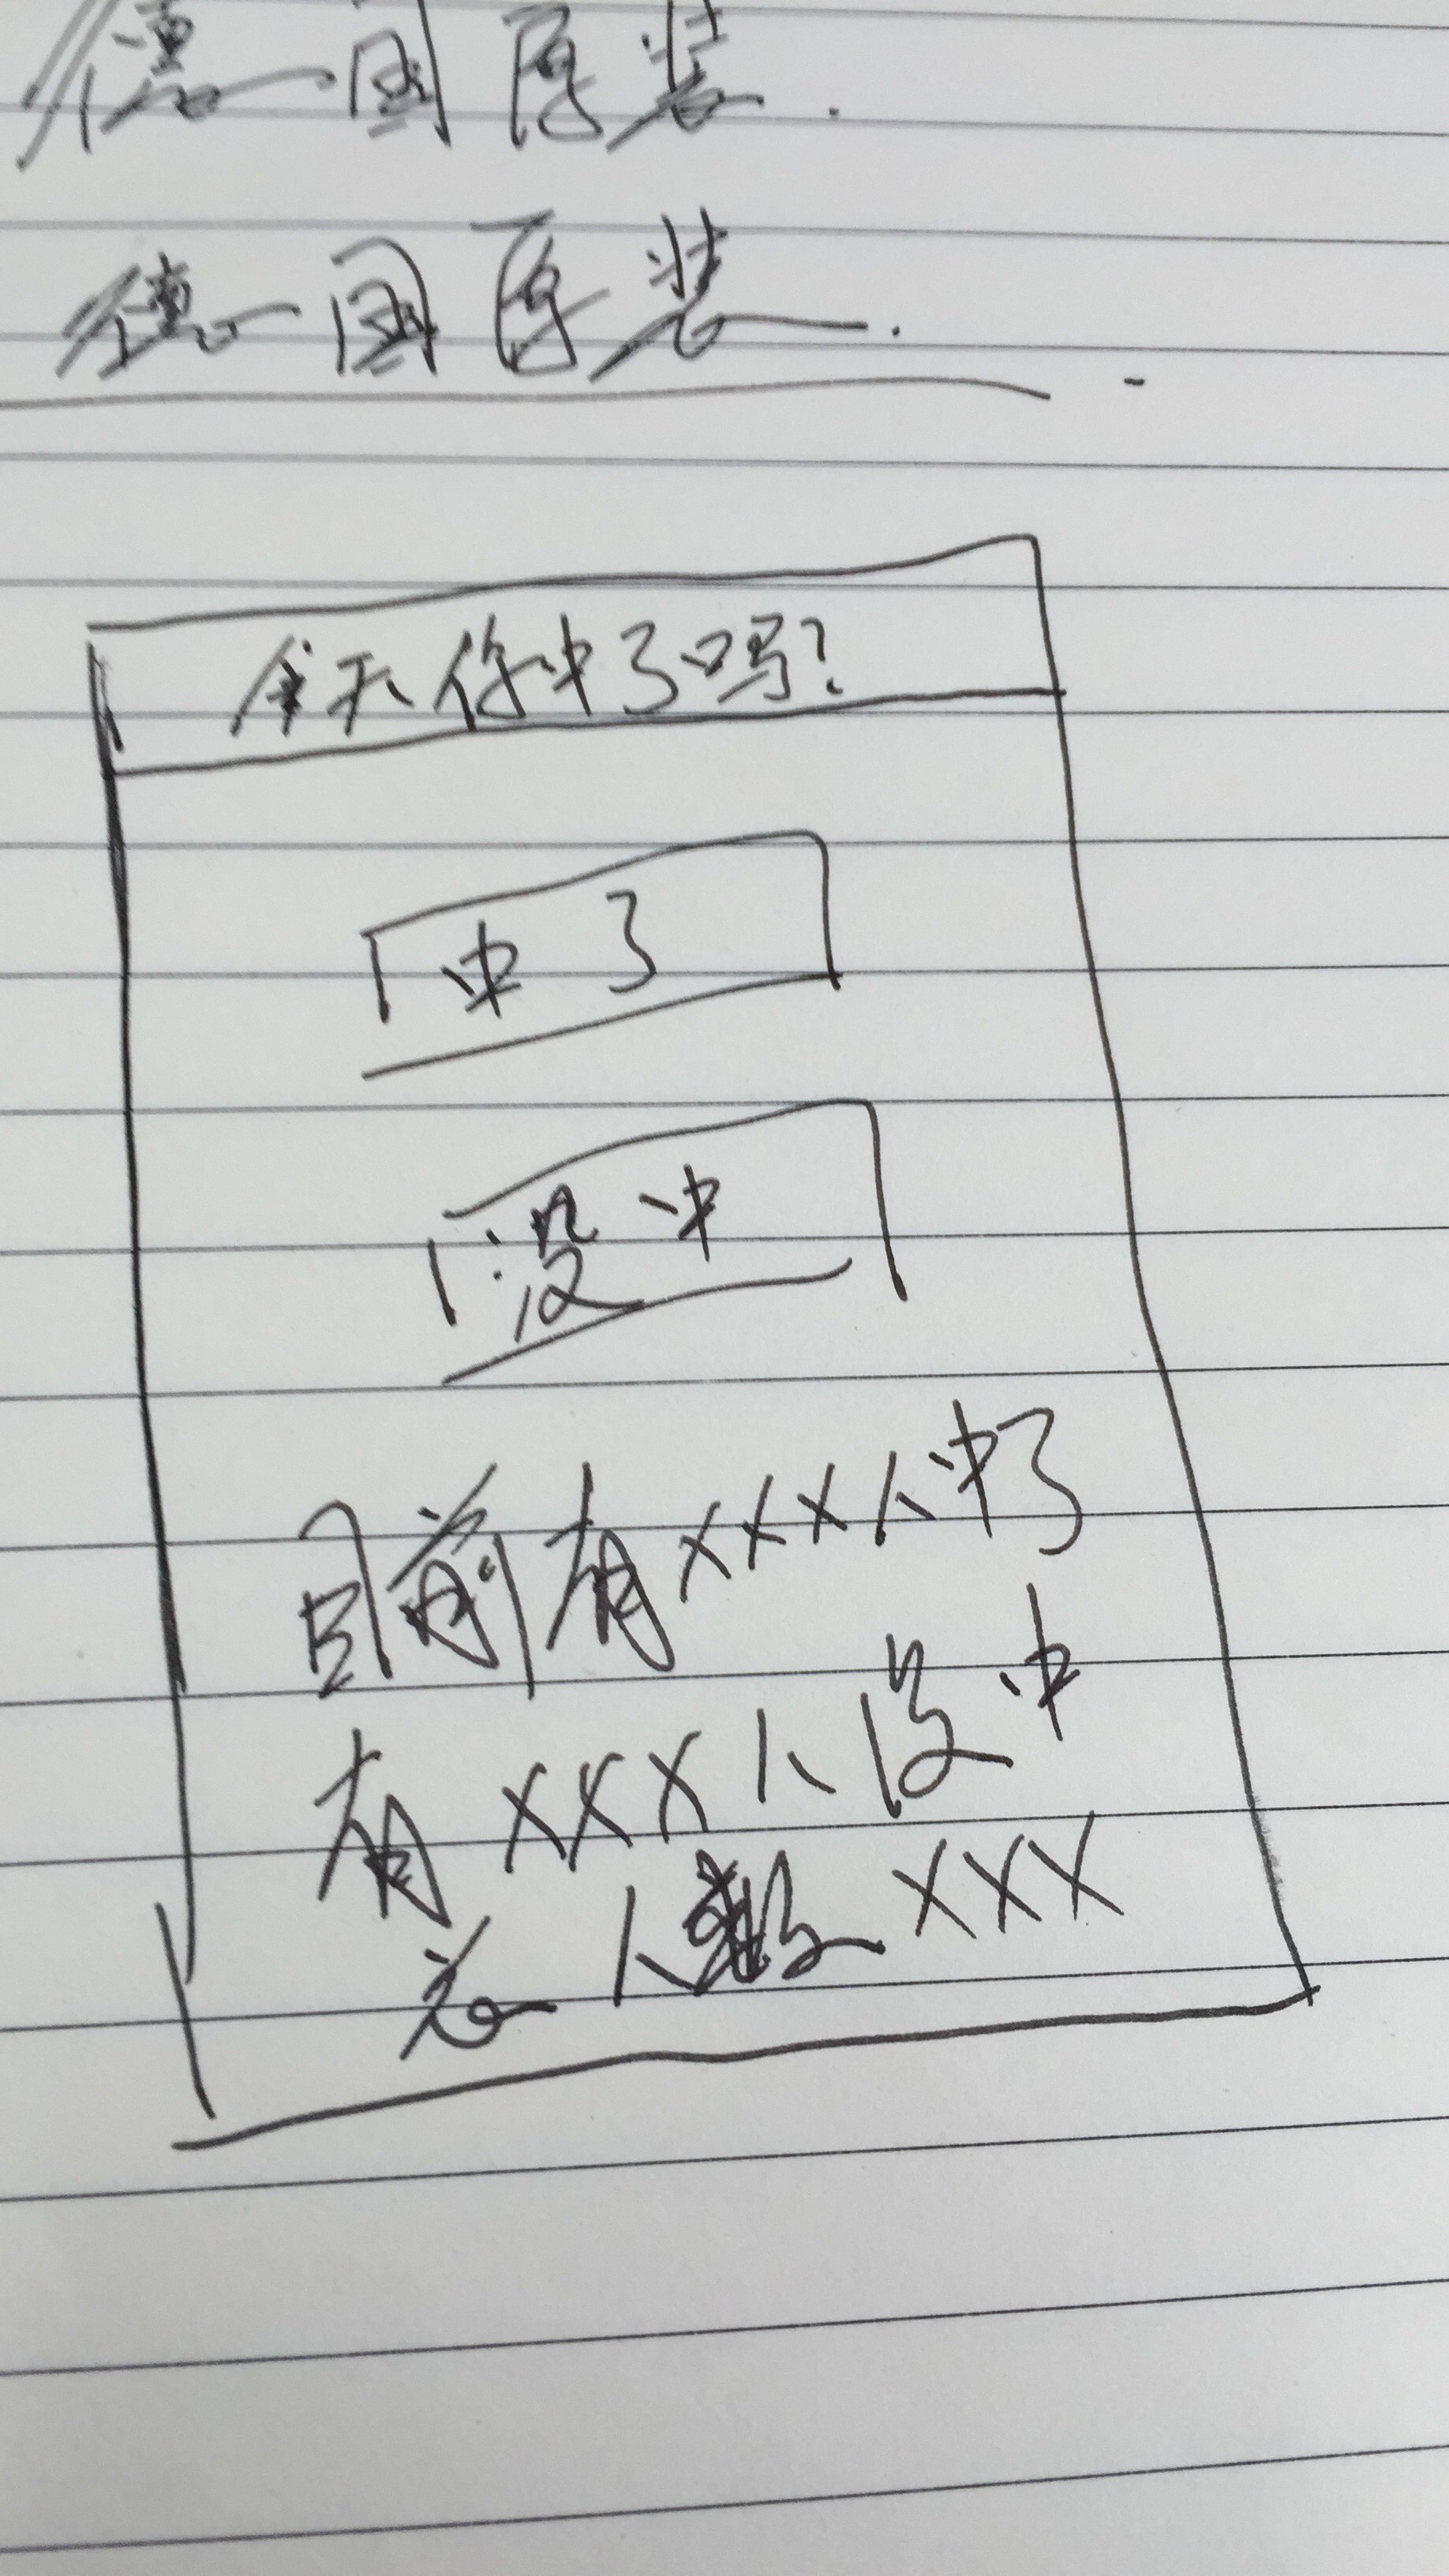 德国原装.
德国原装.
今天你冲了吗?
冲了
没冲
目前有xxx人冲了
有xxx人没冲
总人数xxx